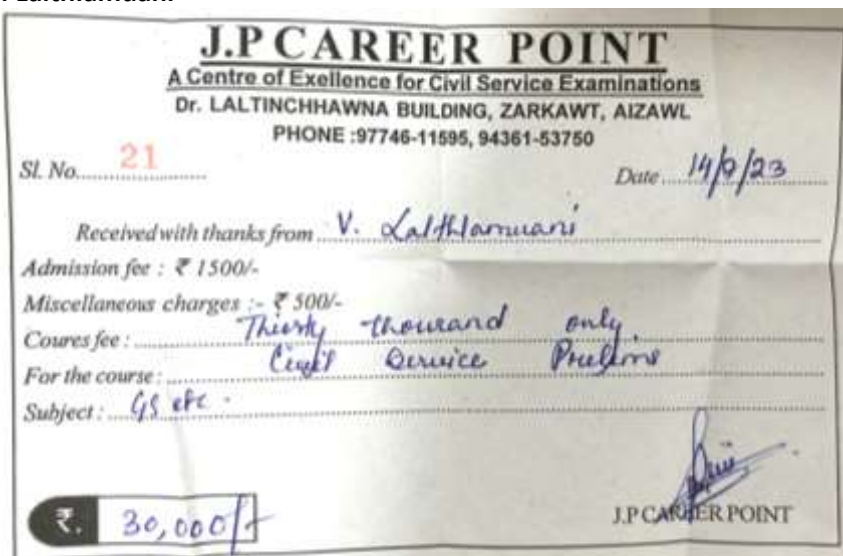 J.P CAREER POINT
A Centre of Exellence for Civil Service Examinations
Dr. LALTINCHHAWNA BUILDING, ZARKAWT, AIZAWL
PHONE :97746-11595, 94361-53750
Sl. No. 21 Date 14/9/23
Received with thanks from V. Lalthlamuani
Admission fee : ₹ 1500/-
Miscellaneous charges :- ₹ 500/-
Coures fee : Thirty thousand only
For the course : Civil Service Prelims
Subject : GS etc.
₹. 30,000/-
J.P CAREER POINT